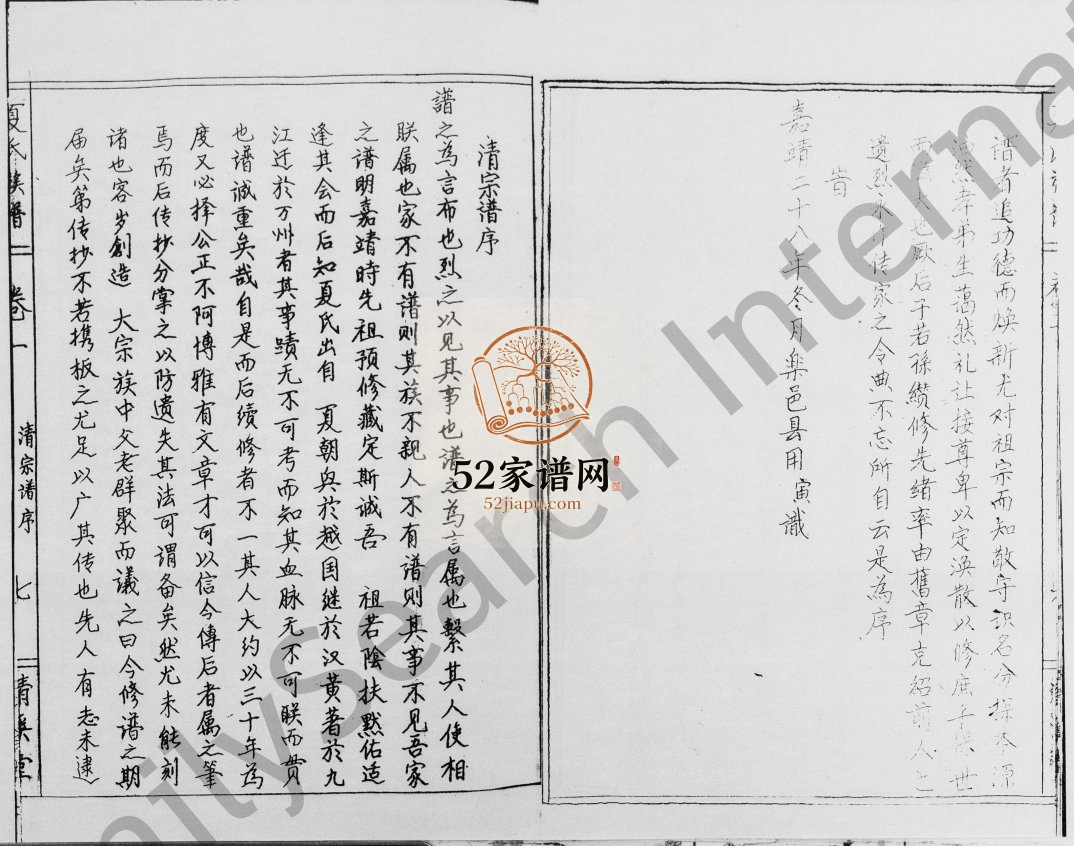 谱者追功德而焕新尤对祖宗而知敬守识名分探本源
孝弟生蔼然礼让接尊卑以定涣散以修庶子
也厥后子若孫缵修先緒率由舊章克紹前人之
遗烈永守传家之令典不忘所自云是為序
旹
嘉靖二十八年冬月楽邑县用寅谶
清宗譜序
譜之為言布也烈之以见其事也谱之為言属也繫其人使相
联属也家不有譜则其族不親人不有譜则其事不见吾家
之谱明嘉靖時先祖预修藏定斯诚吾 祖若陰扶黙佑适
逢其会而后知夏氏出自 夏朝與於越国继於汉黄著於九
江迁於万州者其事蹟无不可考而知其血脉无不可联而贯
也谱诚重矣哉自是而后续修者不一其人大约以三十年為
度又必择公正不阿博雅有文章才可以信今傳后者属之筆
焉而后传抄分掌之以防遗失其法可谓备矣然尤未能刻
诸也客岁創造 大宗族中父老群聚而議之曰今修谱之期
届矣第传抄不若携板之尤足以广其传也先人有志未逮
夏氏族譜
卷一
清宗谱序
七
52家谱网
52jiapu.com
FamilySearch International